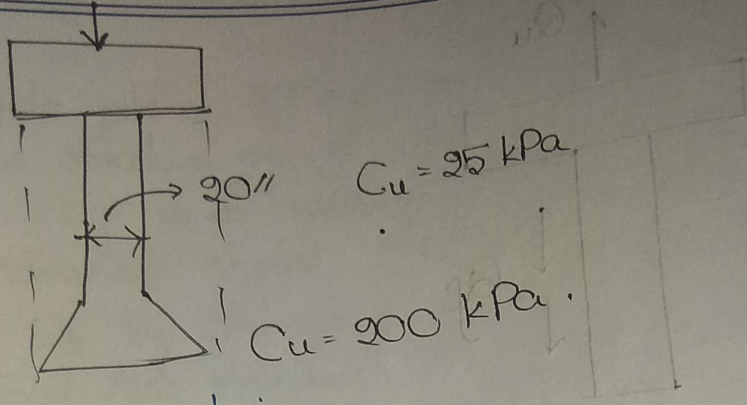 20"
Cu = 25 kPa.
Cu = 200 kPa.